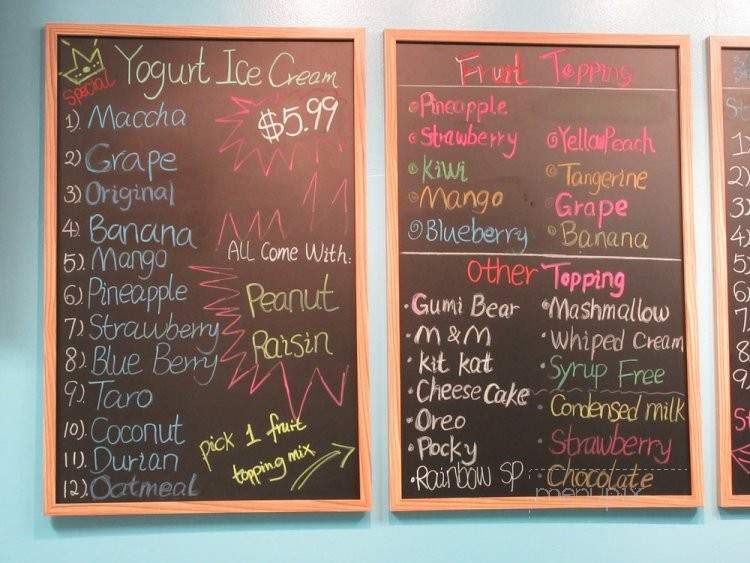 Special
Yogurt Ice Cream
$5.99
1). Maccha
2) Grape
3) Original
4). Banana
5). Mango
6). Pineapple
7). Strawberry
8). Blue Berry
9). Taro
10). Coconut
11). Durian
12). Oatmeal
ALL Come With:
Peanut
Raisin
pick 1 fruit
topping mix
Fruit Topping
Pineapple
Strawberry
Kiwi
Mango
Blueberry
Yellow Peach
Tangerine
Grape
Banana
Other Topping
Gumi Bear
M & M
kit kat
Cheese Cake
Oreo
Pocky
Rainbow SP
Mashmallow
Whiped Cream
Syrup Free
Condensed milk
Strawberry
Chocolate
menupix
1)
2)
3)
4)
5)
6)
7
8
9
St